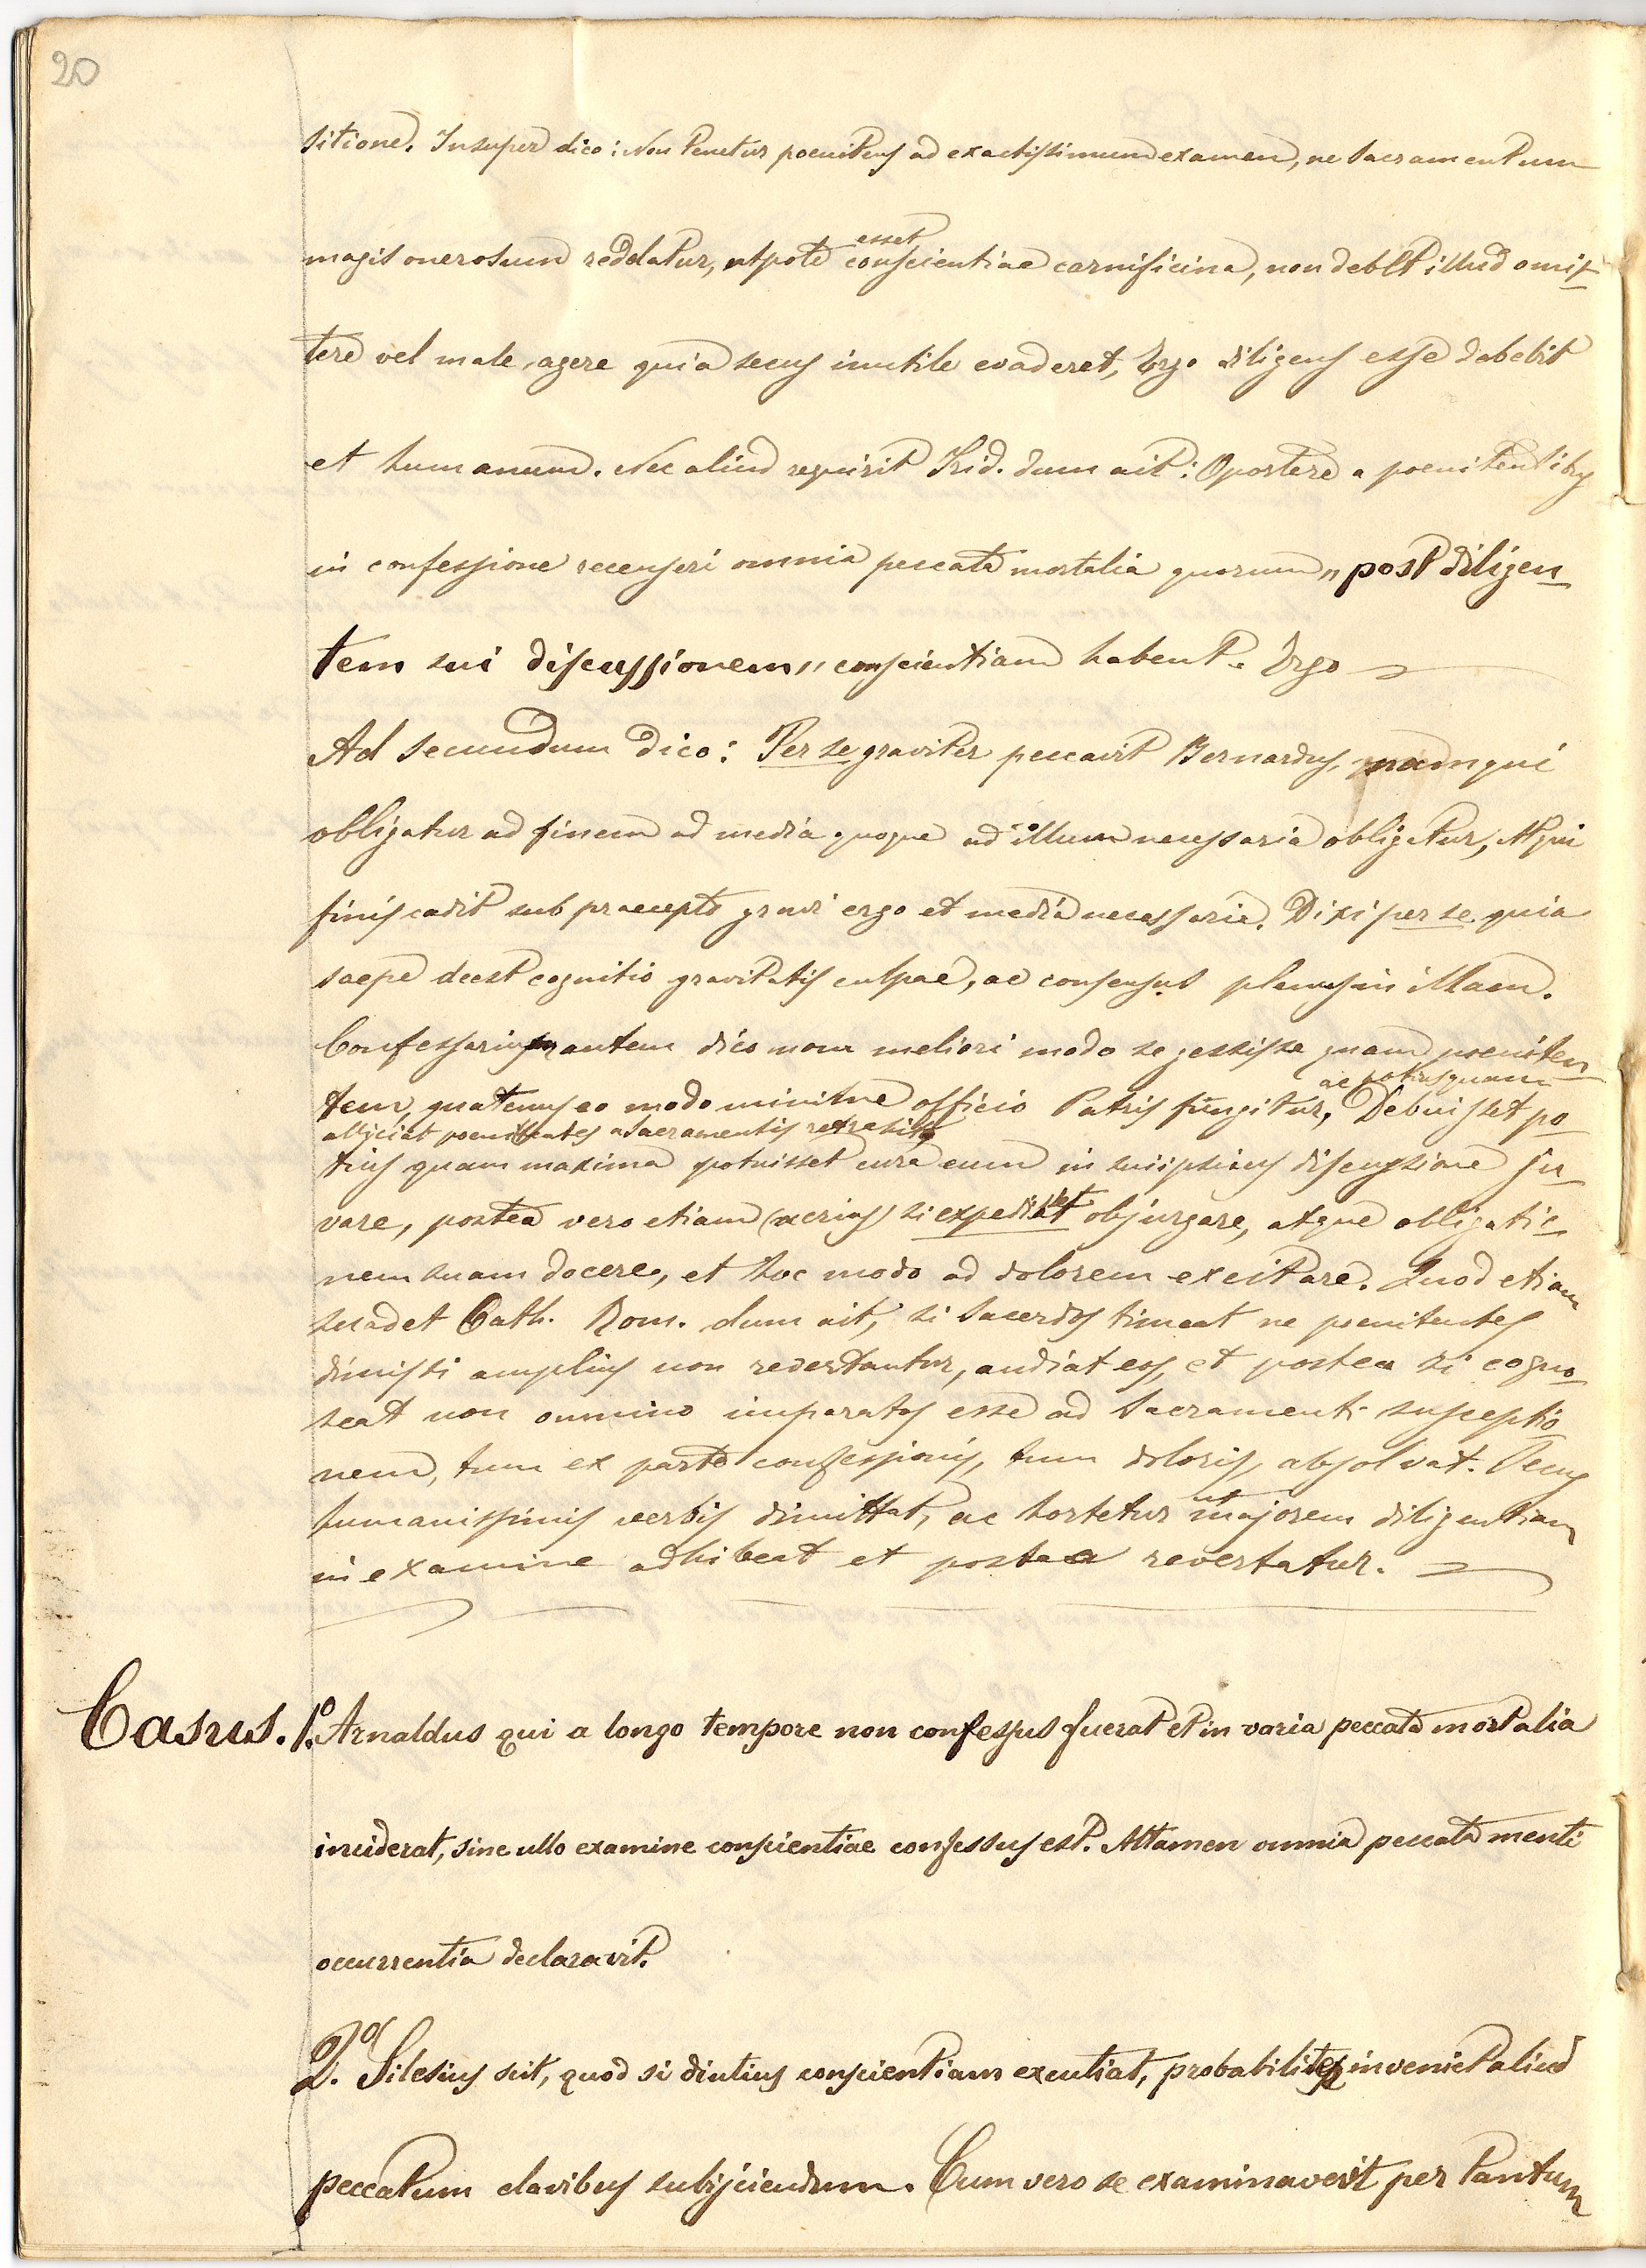 20
sitione. Insuper dico: Non tenetur poenitens ad exactissimum examen, ne Sacramentum
magis onerosum reddatur, utpote conscientiae carnificina, non debet illud omit-
esset
tere vel male agere quia secus inutile evaderet, Ergo diligens esse debebit
et humanum. Nec aliud requirit Trid. dum ait: Oportere a poenitentibus
in confessione recenseri omnia peccata mortalia quorum „post diligen-
tem sui discussionem„ conscientiam habent. Ergo
Ad secundum dico: Per se graviter peccavit Bernardus, nam qui
obligatur ad finem ad media quoque ad illum necessaria obligatur, Atqui
finis cadit sub praecepto gravi ergo et media necessaria. Dixi per se quia
saepe deest cognitio gravitatis culpae, ac consensus plenus in illam.
Confessarium autem dico non meliori modo se gessisse quam poeniten-
tem, quatenus eo modo minime officio Patris fungitur, Debuisset po-
ac potius quam
abjiciat poenitentes a sacramentis retrahit
tius quam maxima potuisset cura eum in sui ipsius discussione ju-
vare, postea vero etiam (acrius) si expediret objurgare, atque obligatio-
nem suam docere, et hoc modo ad dolorem excitare. Quod etiam
suadet Cath. Rom. dum ait, si Sacerdos timeat ne poenitentes
dimissi amplius non revertantur, audiat eos, et postea si cogno-
scat non omnino imparatos esse ad Sacramenti susceptio
nem, tum ex parte confessionis, tum doloris, absolvat. Secus
humanissimis verbis dimittat, ac hortetur ut majorem diligentiam
in examine adhibeat et postea revertatur.
Casus. 1.º Arnaldus qui a longo tempore non confessus fuerat et in varia peccata mortalia
inciderat, sine ullo examine conscientiae confessus est. Attamen omnia peccata menti
occurrentia declaravit.
2.º Silesius scit, quod si diutius conscientiam excutiat, probabiliter inveniet aliud
peccatum clavibus subijciendum. Cum vero se examinaverit per tantum